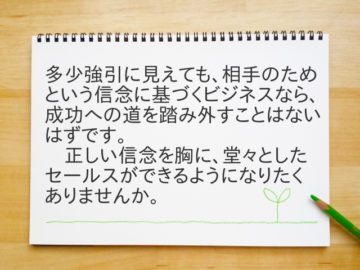 多少強引に見えても、相手のため
という信念に基づくビジネスなら、
成功への道を踏み外すことはない
はずです。
　正しい信念を胸に、堂々とした
セールスができるようになりたく
ありませんか。